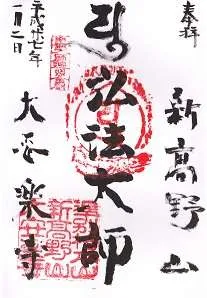 奉拝
新高野山
弘法大師
大安楽寺
平成廿七年
一月二日
新高野山